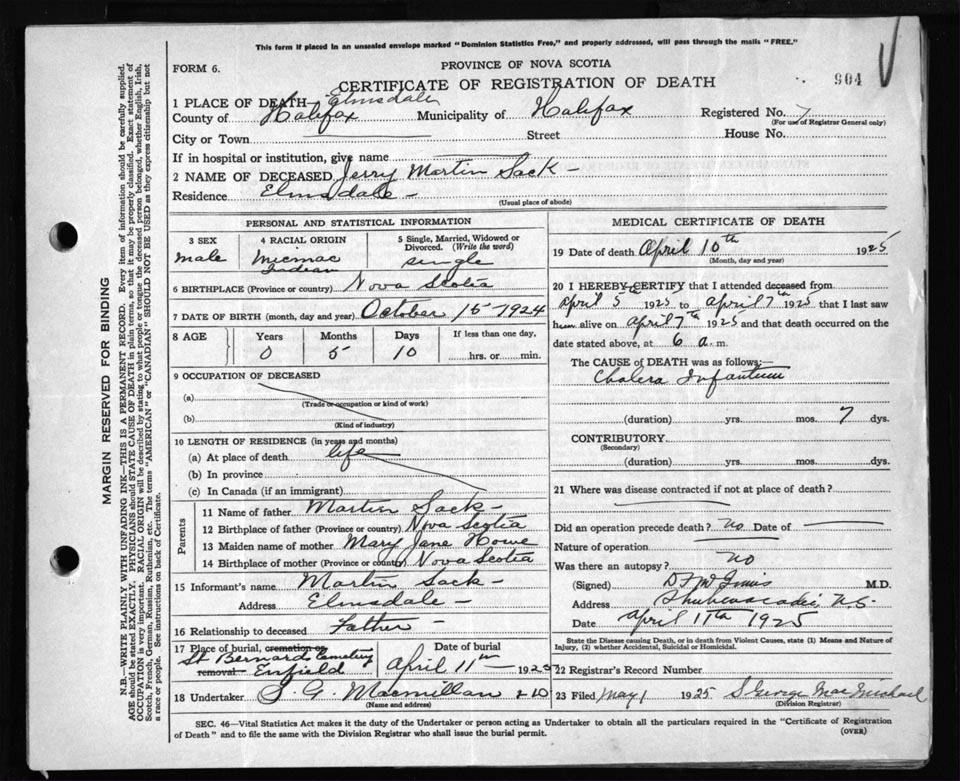 This form if placed in an unsealed envelope marked "Dominion Statistics Free," and properly addressed, will pass through the mails "FREE."
FORM 6.
PROVINCE OF NOVA SCOTIA
CERTIFICATE OF REGISTRATION OF DEATH
904
1 PLACE OF DEATH— Elmsdale
County of Halifax Municipality of Halifax Registered No. 7
(For use of Registrar General only)
City or Town Street House No.
If in hospital or institution, give name
2 NAME OF DECEASED Jerry Martin Sack –
Residence Elmsdale –
(Usual place of abode)
PERSONAL AND STATISTICAL INFORMATION
3 SEX
male
4 RACIAL ORIGIN
Micmac
Indian
5 Single, Married, Widowed or
Divorced. (Write the word)
single
6 BIRTHPLACE (Province or country) Nova Scotia
7 DATE OF BIRTH (month, day and year) October 15 – 1924
8 AGE
Years Months Days If less than one day,
0 5 10 hrs. or min.
9 OCCUPATION OF DECEASED
(a)
(Trade or occupation or kind of work)
(b)
(Kind of industry)
10 LENGTH OF RESIDENCE (in years and months)
(a) At place of death life
(b) In province
(c) In Canada (if an immigrant)
Parents
11 Name of father Martin Sack –
12 Birthplace of father (Province or country) Nova Scotia
13 Maiden name of mother Mary Jane Howe
14 Birthplace of mother (Province or country) Nova Scotia
15 Informant's name Martin Sack –
Address Elmsdale –
16 Relationship to deceased Father –
17 Place of burial, cremation or
removal
St Bernards Cemetery
Enfield
Date of burial
April 11th – 1925
18 Undertaker S. G. Macmillan
(Name and address)
MEDICAL CERTIFICATE OF DEATH
19 Date of death April 10th 1925
(Month, day and year)
20 I HEREBY CERTIFY that I attended deceased from
April 5th 1925 to April 7th 1925 that I last saw
him alive on April 7th 1925 and that death occurred on the
date stated above, at 6 a. m.
The CAUSE of DEATH was as follows:—
Cholera Infantum
(duration) yrs. mos. 7 dys.
CONTRIBUTORY
(Secondary)
(duration) yrs. mos. dys.
21 Where was disease contracted if not at place of death?
Did an operation precede death? No Date of
Nature of operation
Was there an autopsy? No
(Signed) M.D.
Address Shubenacadie, N.S.
Date April 11th 1925
State the Disease causing Death, or in death from Violent Causes, state (1) Means and Nature of
Injury, (2) whether Accidental, Suicidal or Homicidal.
22 Registrar's Record Number
23 Filed May 1 1925 S George MacMichael
(Division Registrar)
SEC. 46—Vital Statistics Act makes it the duty of the Undertaker or person acting as Undertaker to obtain all the particulars required in the "Certificate of Registration
of Death" and to file the same with the Division Registrar who shall issue the burial permit.
(OVER)
MARGIN RESERVED FOR BINDING
N.B.—WRITE PLAINLY WITH UNFADING INK—THIS IS A PERMANENT RECORD. Every item of information should be carefully supplied.
AGE should be stated EXACTLY. PHYSICIANS should STATE CAUSE OF DEATH in plain terms, so that it may be properly classified. Exact statement of
OCCUPATION is very important. RACIAL ORIGIN will be described by stating to what people or tongue the deceased person belonged, whether English, Irish,
Scotch, French, German, Russian, Ruthenian, etc. The terms "AMERICAN" or "CANADIAN" SHOULD NOT BE USED as they express citizenship but not
a race or people. See instructions on back of Certificate.